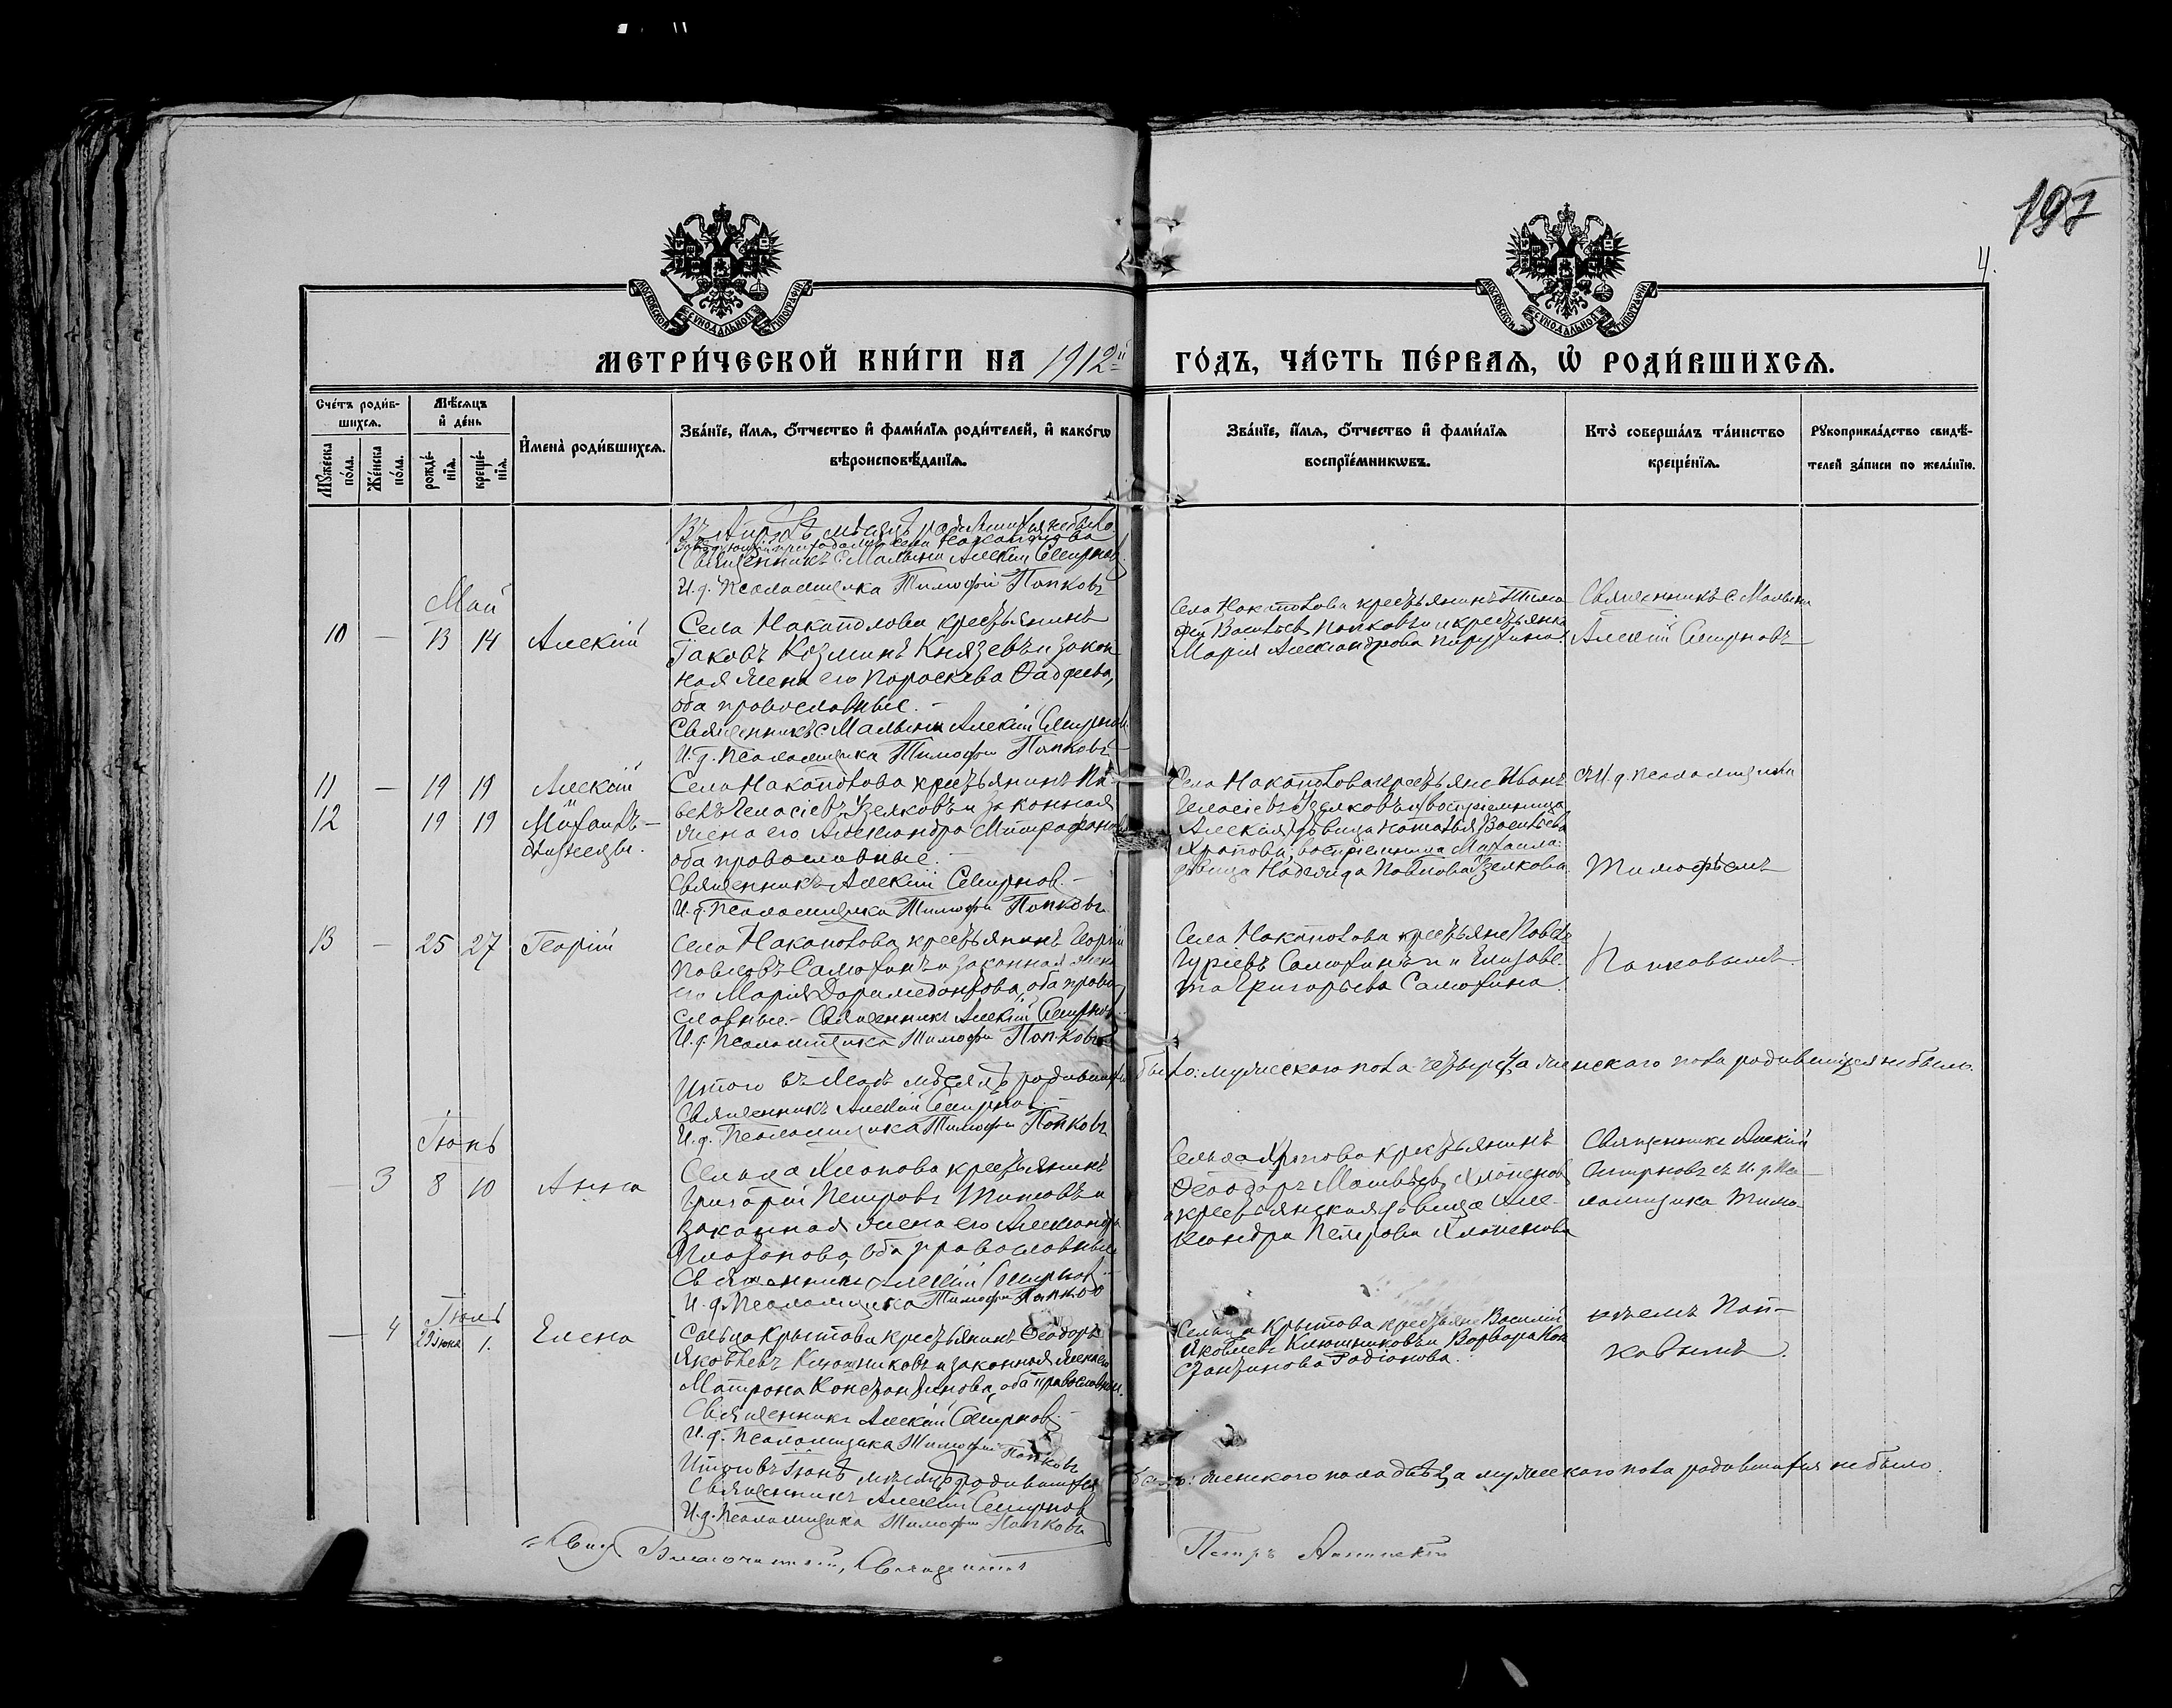 197
4.
МОСКОВСКОЙ СѴНОДАЛЬНОЙ ТИПОГРАФІИ
МОСКОВСКОЙ СѴНОДАЛЬНОЙ ТИПОГРАФІИ
МЕТРИ́ЧЕСКОЙ КНИ́ГИ НА 1912й ГО́ДЪ, ЧА́СТЬ ПЕ́РВАѦ, Ѽ РОДИ́ВШИХСѦ.
Сче́тъ роди́в-
шихсѧ.
Мѣ́сѧцъ
и҆ де́нь
Мꙋ́жеска
по́ла.
Же́нска
по́ла.
рожде́-
нїѧ.
креще́-
нїѧ.
И҆мена̀ роди́вшихсѧ.
Зва́нїе, и҆́мѧ, ѻ҆́тчество и҆ фами́лїѧ роди́телей, и҆ како́гѡ
вѣроисповѣ́данїѧ.
Зва́нїе, и҆́мѧ, ѻ҆́тчество и҆ фами́лїѧ
воспрїе́мникѡвъ.
Кто̀ соверша́лъ та́инство
креще́нїѧ.
Рꙋкоприкла́дство свидѣ́-
телей за́писи по жела́нїю.
Въ Апрѣлѣ мѣсяцѣ родившихся небыло
Священникъ с. Малыни Алексій Смирновъ
И.д. Псаломщика Тимофей Попковъ
Май
10 — 13 14 Алексій
Села Накаполова крестьянинъ
Іаковъ Козминъ Князевъ и закон
ная жена его Параскева Фаддеева,
оба православные.
Священникъ с. Малыни Алексій Смирновъ
И.д. Псаломщика Тимофей Попковъ
Села Накаполова крестьянинъ Тимо
фей Васильевъ Попковъ и крестьянка
Мария Александрова Парухина.
Священникъ с. Малыни
Алексій Смирновъ
11 — 19 19 Алексій
12 19 19 Михаилъ —
близнецы.
Села Накаполова крестьянинъ Па-
велъ Геласіевъ Узелковъ и законная
жена его Александра Митрофанова
оба православные.
Священникъ Алексій Смирнов.
И.д. Псаломщика Тимофей Попковъ
Села Накаполова крестьяне Иванъ
Геласіевъ Узелковъ и воспріемница
Алексія дѣвица Наталья Васильева
воспріемница Михаила:
дѣвица Надежда Павлова Узелкова.
съ И.д. псаломщика
Тимофѣемъ
13 — 25 27 Георгій
Села Накаполова крестьянинъ Георгій
Павловъ Самохинъ и законная жена
его Марія Доримедонтова, оба право
славные. Священникъ Алексій Смирнов.
И.д. Псаломщика Тимофей Попковъ
Села Накаполова крестьяне Павелъ
Гуріевъ Самохинъ и Елизаве-
та Григорьева Самохина.
Попковымъ.
Итого въ Маѣ мѣсяцѣ родившихся было: мужескаго пола четыре, а женскаго пола родившихся небыло.
Священникъ Алексій Смирнов.
И.д. Псаломщика Тимофей Попковъ
Іюнь
— 3 8 10 Анна
Сельца Хлопова крестьянинъ
Григорій Петровъ Титовъ и
законная жена его Александра
Платонова, оба православные
Священникъ Алексій Смирнов.
И.д. Псаломщика Тимофей Попковъ
Сельца Хлопова крестьянинъ
Ѳеодоръ Матвѣевъ Хлопенов
и крестьянская дѣвица Але-
ксандра Петрова Хлопенова
Священникъ Алексій
Смирновъ съ И.д. Пса-
ломщика Тимо-
Іюль
— 4 29 Іюня 1. Елена
Сельца Крытова крестьянинъ Ѳеодоръ
Яковлевъ Ключниковъ и законная жена его
Матрона Константинова, оба православные.
Священникъ Алексій Смирнов.
И.д. Псаломщика Тимофей Попковъ
Сельца Крытова крестьяне Василій
Яковлевъ Ключниковъ и Варвара Кон
стантинова Родіонова.
ѳѣемъ Поп-
ковымъ.
Итого въ Іюнѣ мѣсяцѣ родившихся было: женскаго пола двѣ, а мужескаго пола родившихся небыло.
Священникъ Алексій Смирнов
И.д. Псаломщика Тимофей Попковъ
Благочинный, Священникъ Петръ